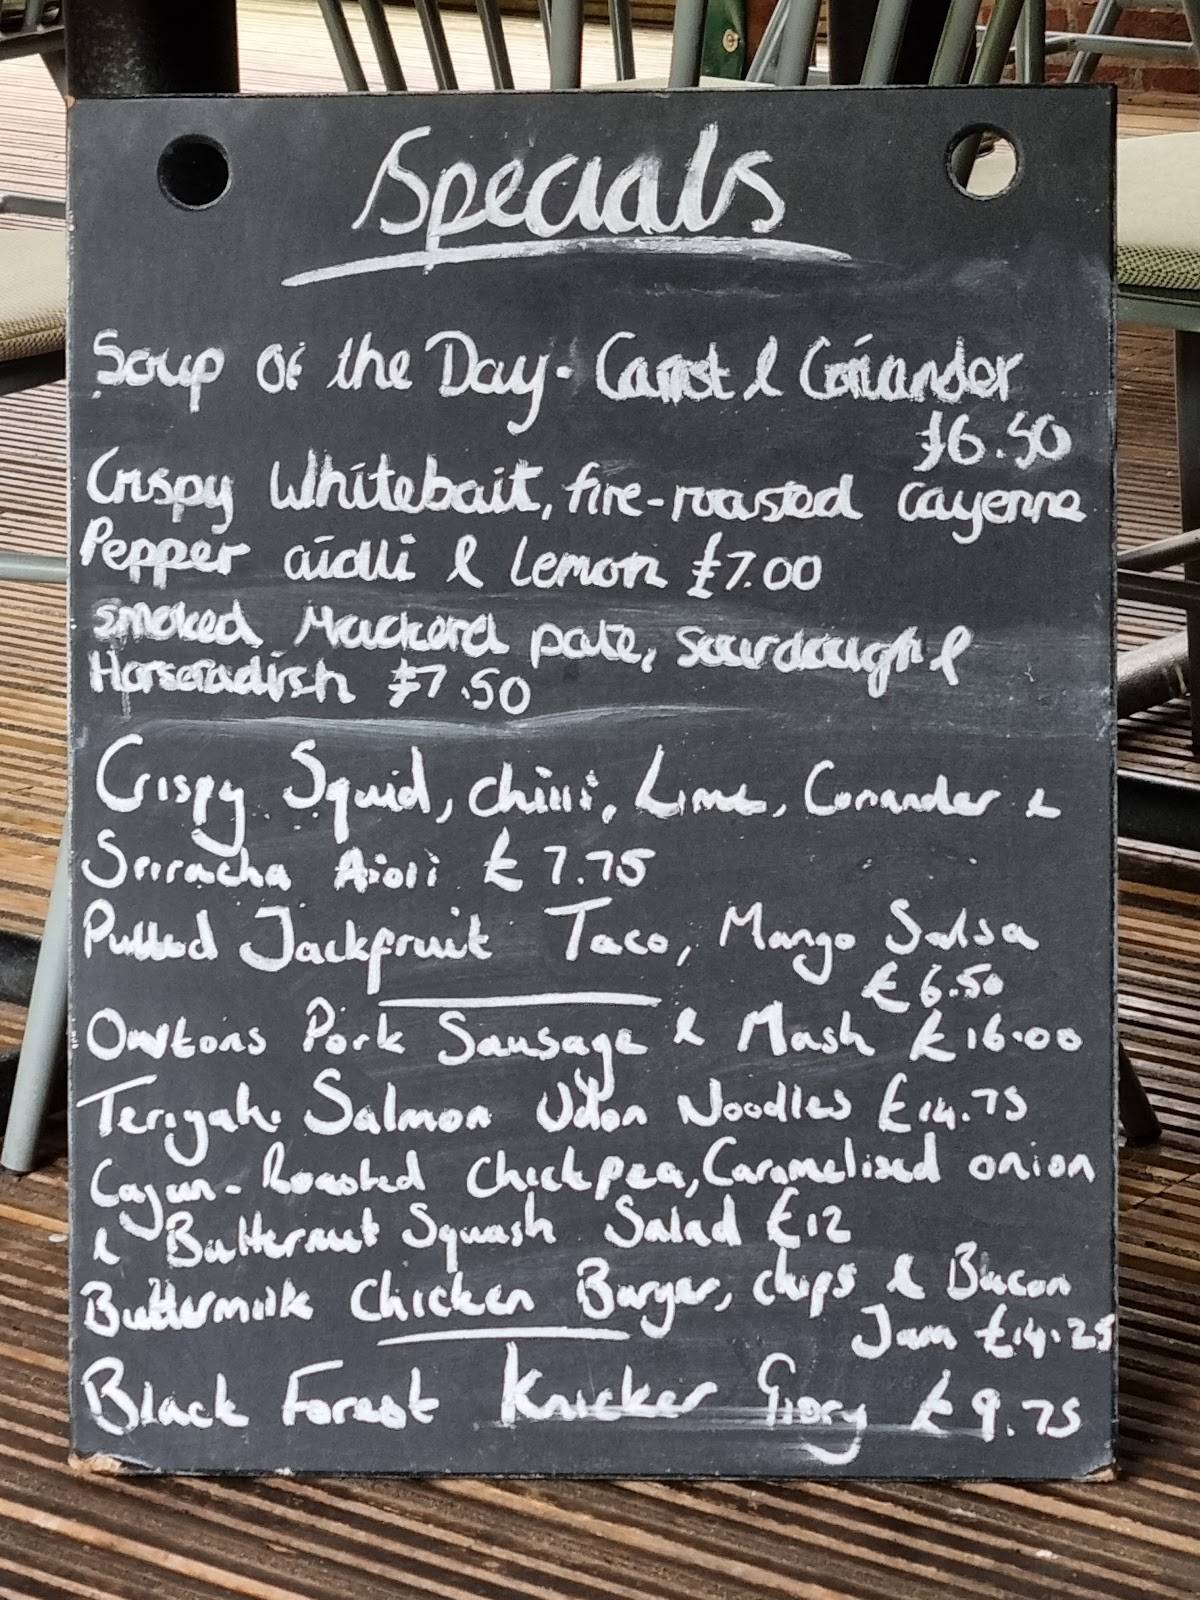 Specials
Soup of the Day - Carrot & Coriander
£6.50
Crispy Whitebait, fire-roasted Cayenne
Pepper aiolli & lemon £7.00
Smoked Mackeral pate, sourdough &
Horseradish £7.50
Crispy Squid, chilli, Lime, Coriander &
Sriracha Aioli £7.75
Pulled Jackfruit Taco, Mango Salsa
£6.50
Owtons Pork Sausage & Mash £16.00
Teriyaki Salmon Udon Noodles £14.75
Cajun-Roasted Chickpea, Caramelised onion
& Butternut Squash Salad £12
Buttermilk Chicken Burger, chips & Bacon
Jam £14.25
Black Forest Knicker Glory £9.75